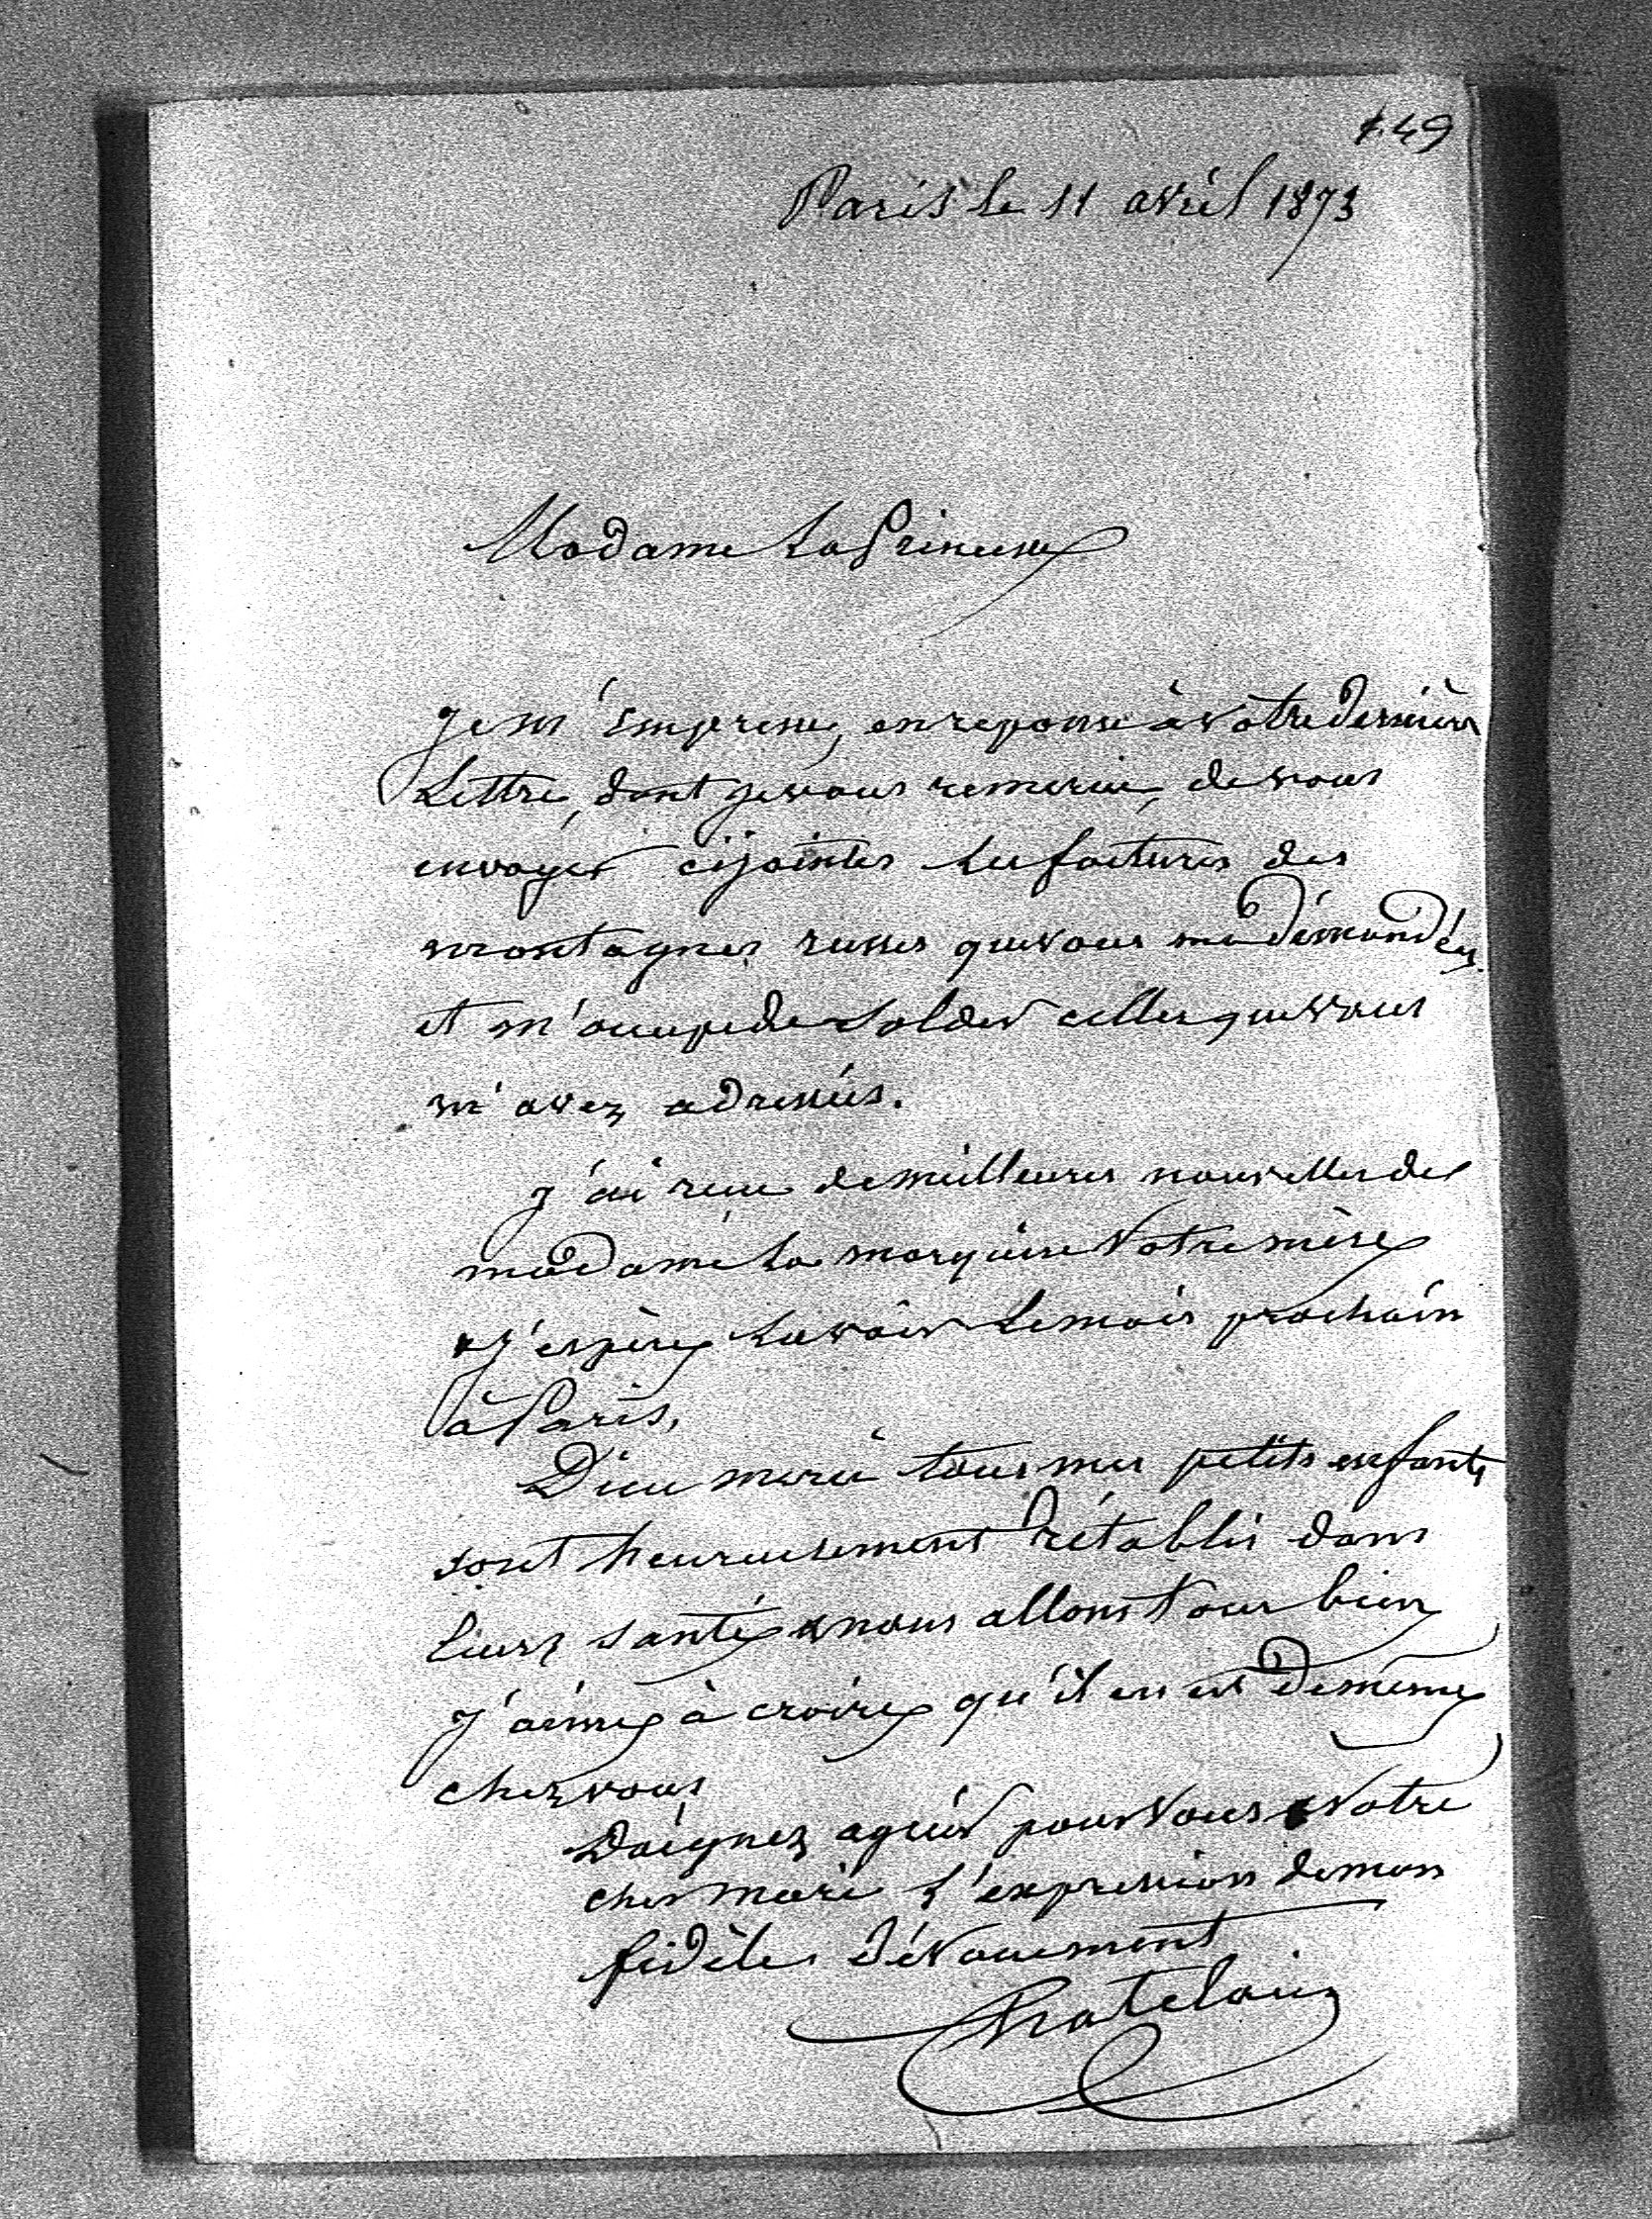 149
Paris le 11 avril 1873
Madame La Princesse
Je m'empresse, en reponse à votre dernière
Lettre, dont je vous remercie, de vous
envoyer cijointes les factures des
montagnes russes que vous me demandéz
et m'occupe de solder celles que vous
m'avez adressées.
J'ai reçu de meilleures nouvelles de
madame la marquise votre mère
& j'espère la voir le mois prochain
à Paris,
Dieu merci tous mes petits enfants
sont heureusement rétablis dans
leurs santé & nous allons tous bien
J'aime à croire qu'il en est de même
chez vous
Daignez agréer pour vous & votre
cher mari l'expression de mon
fidèle dévouement
Chatelain